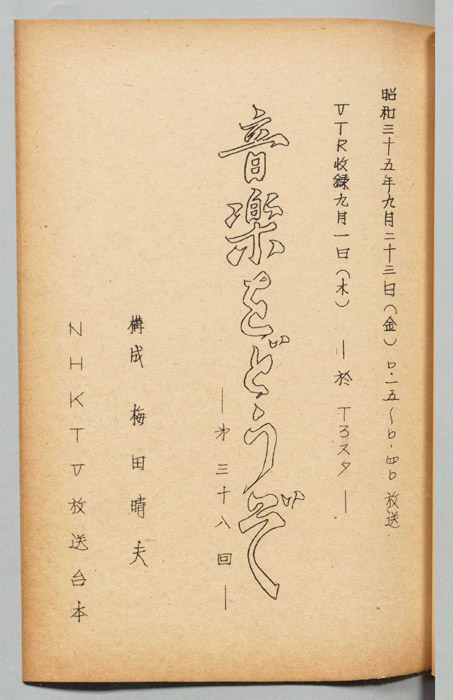 昭和三十五年九月二十三日(金)〇・一五〜〇・四〇 放送
VTR收録九月一日(木) ―於 T3スタ―
音楽をどうぞ
―㐧三十八回―
構成 梅田晴夫
NHKTV放送台本